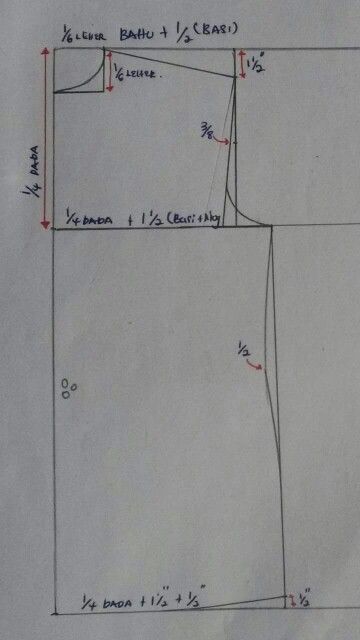 1/6 LEHER BAHU + 1/2 (BASI)
1/6 LEHER.
1 1/2"
3/8
1/4 DADA
1/4 DADA + 1 1/2 (Basi+
1/2
1/4 DADA + 1 1/2" + 1/2"
1/2"